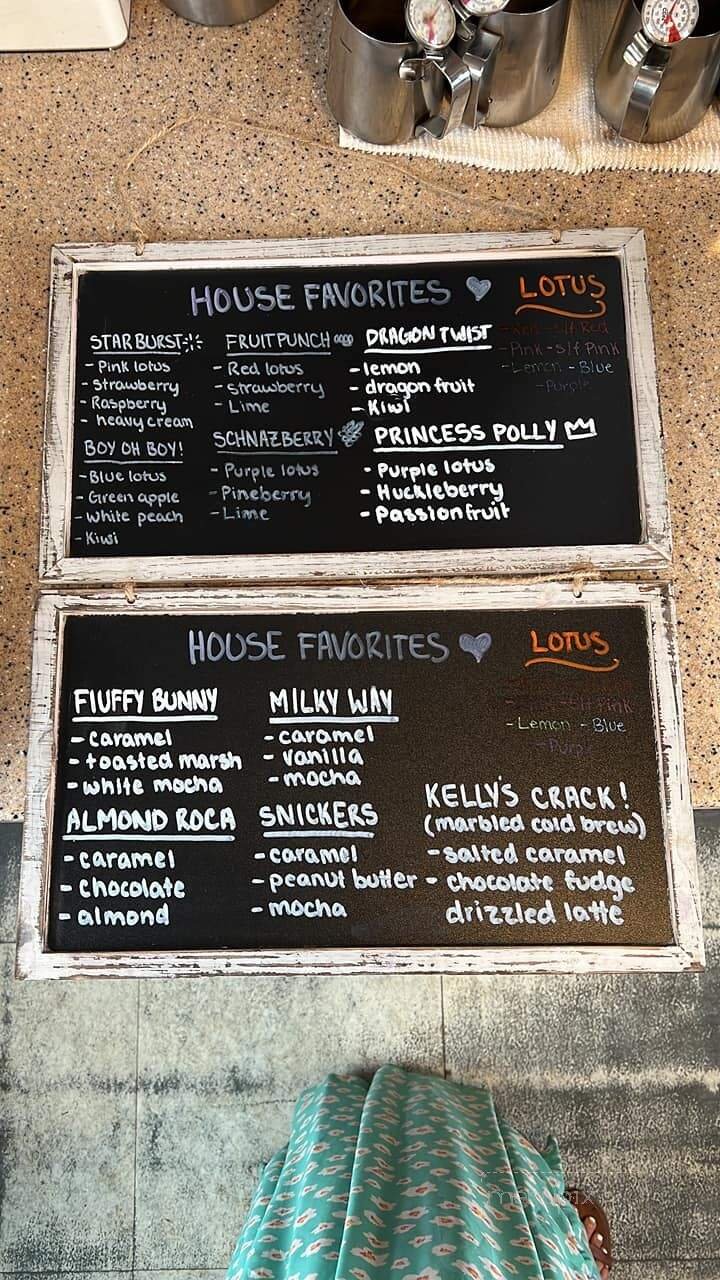 HOUSE FAVORITES
LOTUS
- Red - s/f Red
- Pink - s/f Pink
- Lemon - Blue
- Purple
STARBURST
- Pink lotus
- Strawberry
- Raspberry
- heavy cream
FRUIT PUNCH
- Red lotus
- Strawberry
- Lime
DRAGON TWIST
- lemon
- dragon fruit
- Kiwi
BOY OH BOY!
- Blue lotus
- Green apple
- White peach
- Kiwi
SCHNAZBERRY
- Purple lotus
- Pineberry
- Lime
PRINCESS POLLY
- Purple lotus
- Huckleberry
- Passionfruit
HOUSE FAVORITES
LOTUS
s/f Pink
- Lemon - Blue
- Purple
FLUFFY BUNNY
- caramel
- toasted marsh
- white mocha
MILKY WAY
- caramel
- vanilla
- mocha
ALMOND ROCA
- caramel
- chocolate
- almond
SNICKERS
- caramel
- peanut butter
- mocha
KELLY'S CRACK!
(marbled cold brew)
- salted caramel
- chocolate fudge
drizzled latte